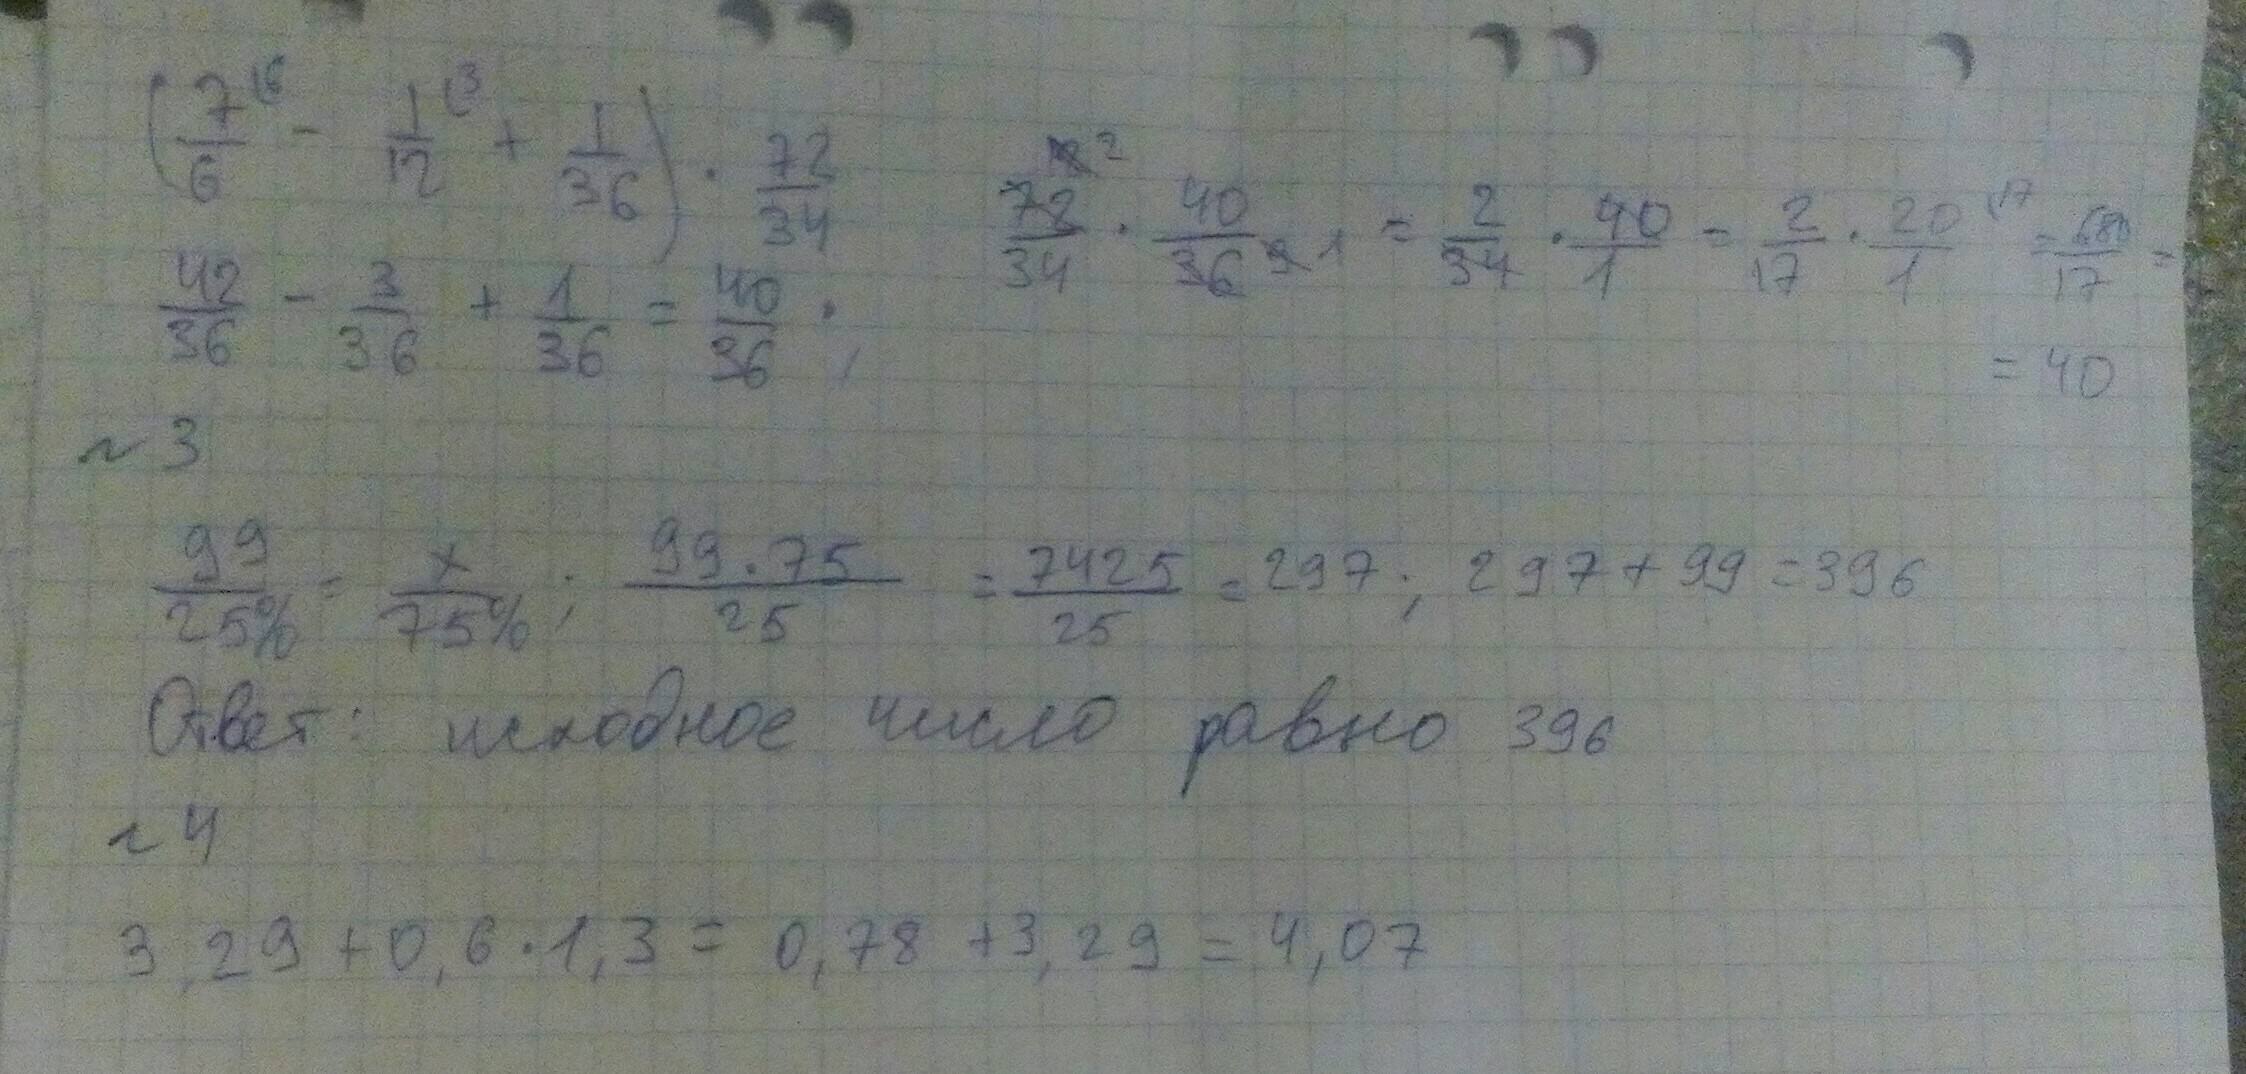 (7/6 (6 - 1/12 (3 + 1/36) · 72/34
42/36 - 3/36 + 1/36 = 40/36 ;
72/34 · 40/36 = 2/34 · 40/1 = 2/17 · 20/1 (17 = 680/17 =
= 40
№3
99/25% = x/75% ; 99·75/25 = 7425/25 = 297; 297+99=396
Ответ: исходное число равно 396
№4
3,29+0,6·1,3 = 0,78 +3,29 = 4,07